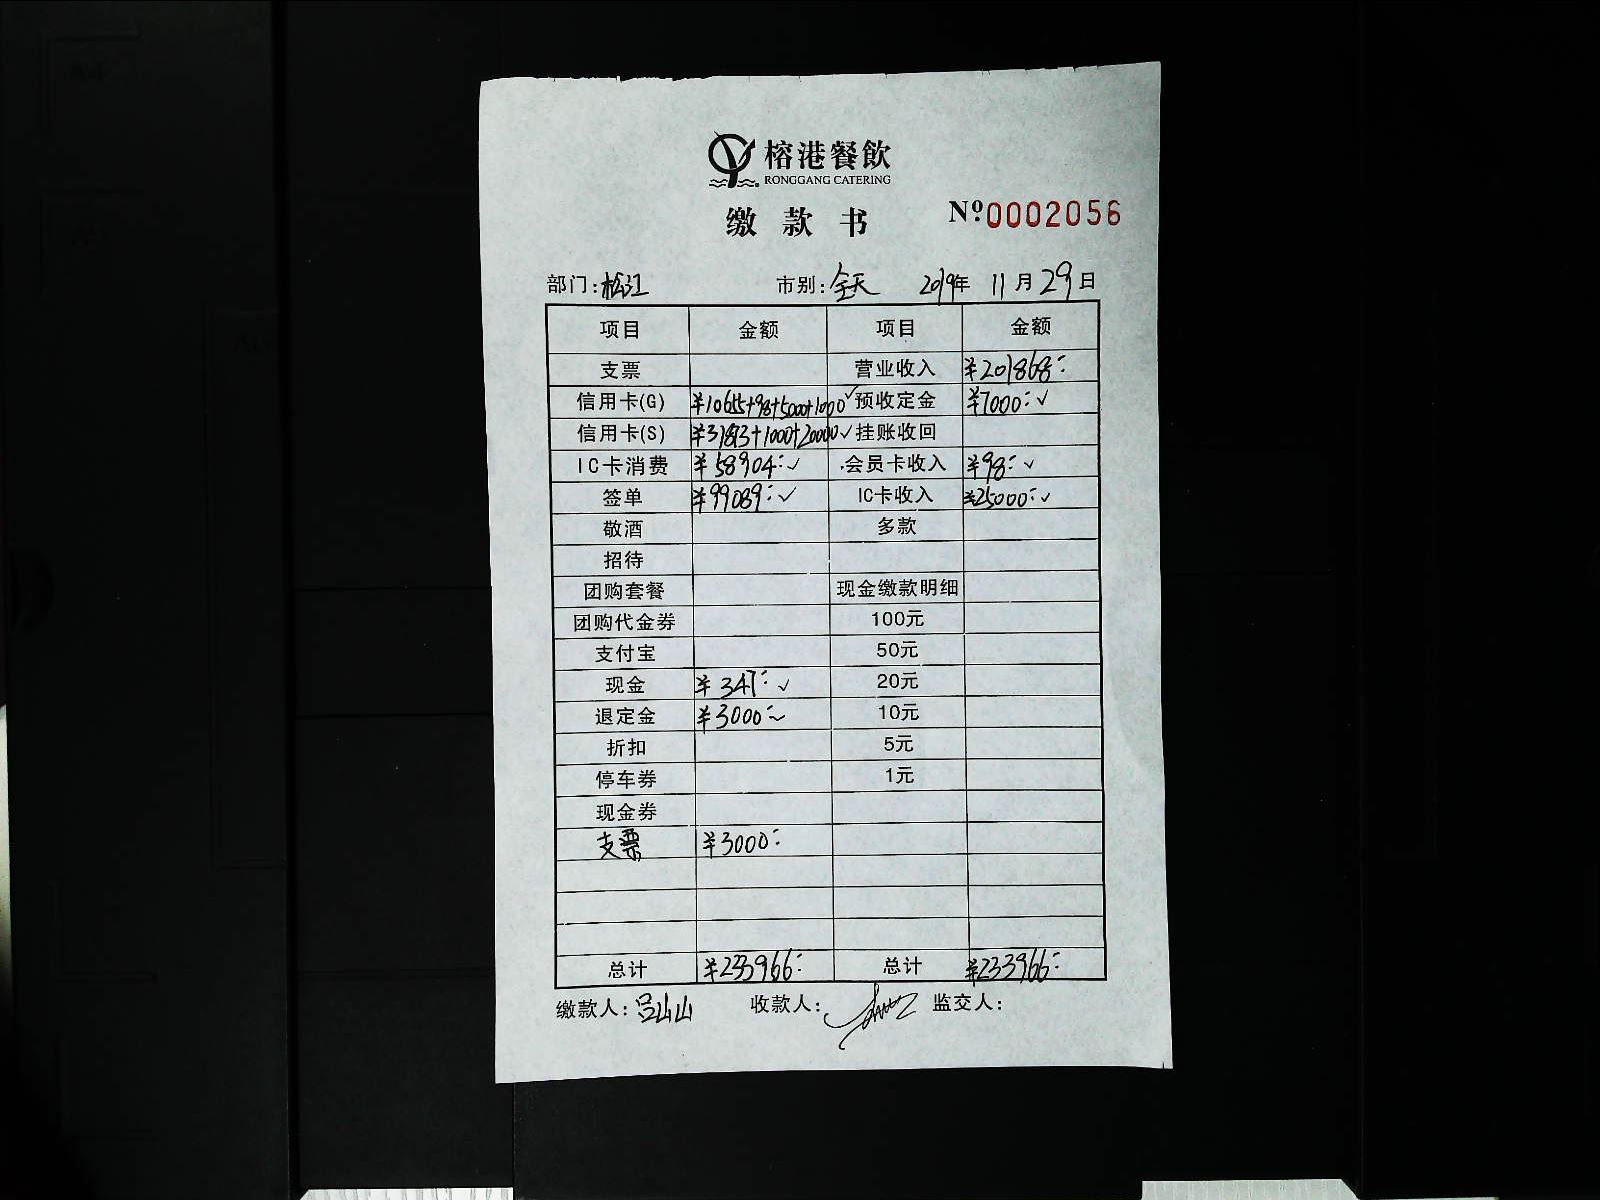 榕港餐飲
RONGGANG CATERING
缴款书 Nº:0002056
部门:松江 市别:全天 2019年 11月29日
项目 金额 项目 金额
支票 营业收入 ¥201868:-
信用卡(G) ¥10655+98+5000+1000✓ 预收定金 ¥7000:-✓
信用卡(S) ¥31873+1000+20000✓ 挂账收回
IC卡消费 ¥58904:-✓ 会员卡收入 ¥98:-✓
签单 ¥99089:-✓ IC卡收入 ¥25000:-✓
敬酒 多款
招待
团购套餐 现金缴款明细
团购代金券 100元
支付宝 50元
现金 ¥347:-✓ 20元
退定金 ¥3000:-✓ 10元
折扣 5元
停车券 1元
现金券
支票 ¥3000:-
总计 ¥233966:- 总计 ¥233966:-
缴款人:吕山山 收款人: 监交人: